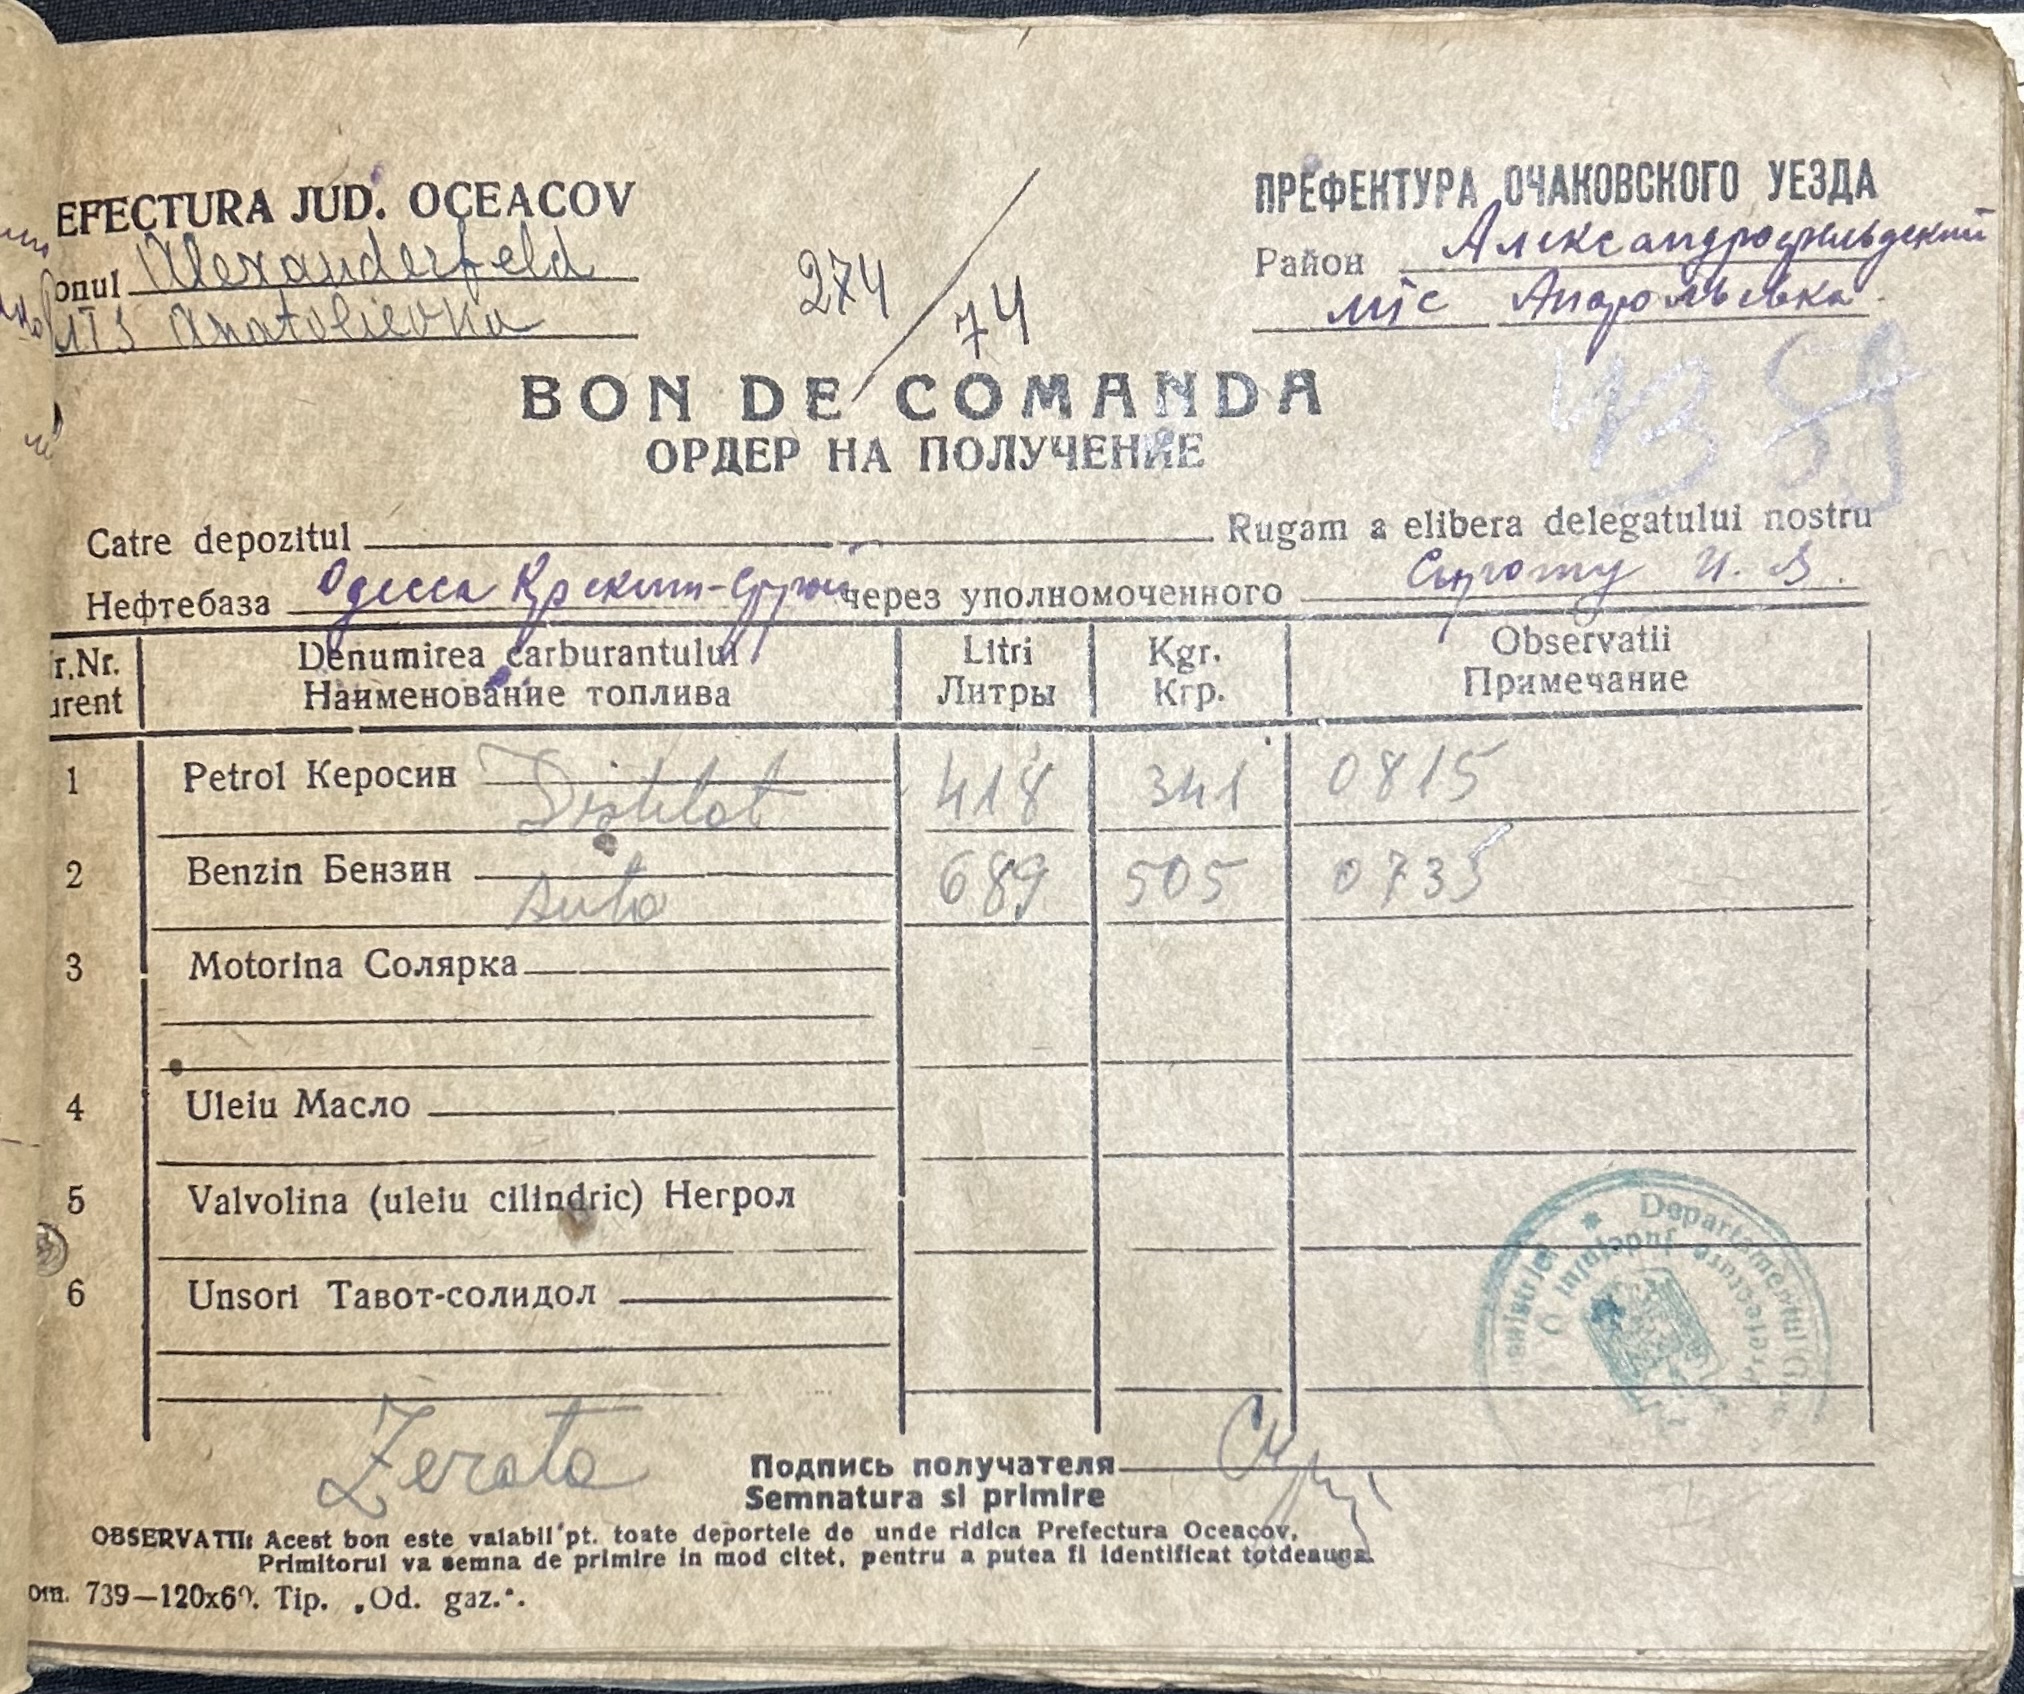 EFECTURA JUD. OCEACOV
onul Alexanderfeld
MTS Anatolievka
274/74
ПРЕФЕКТУРА ОЧАКОВСКОГО УЕЗДА
Район Александрофельдский
мтс
BON DE COMANDA
ОРДЕР НА ПОЛУЧЕНИЕ
Catre depozitul Rugam a elibera delegatului nostru
Нефтебаза Одесса Крекинг- через уполномоченного Сироту И. В.
r.Nr. Denumirea carburantului Litri Kgr. Observatii
urent Наименование топлива Литры Кгр. Примечание
1 Petrol Керосин Distilat 418 341 0815
2 Benzin Бензин Auto 689 505 0735
3 Motorina Солярка
4 Uleiu Масло
5 Valvolina (uleiu cilindric) Негрол
6 Unsori Тавот-солидол
Departamentul
Prefectura Judeţului O
Подпись получателя
Semnatura si primire
OBSERVATII: Acest bon este valabil pt. toate deportele de unde ridica Prefectura Oceacov.
Primitorul va semna de primire in mod citet, pentru a putea fi identificat totdeauna.
om. 739—120x60. Tip. „Od. gaz.".